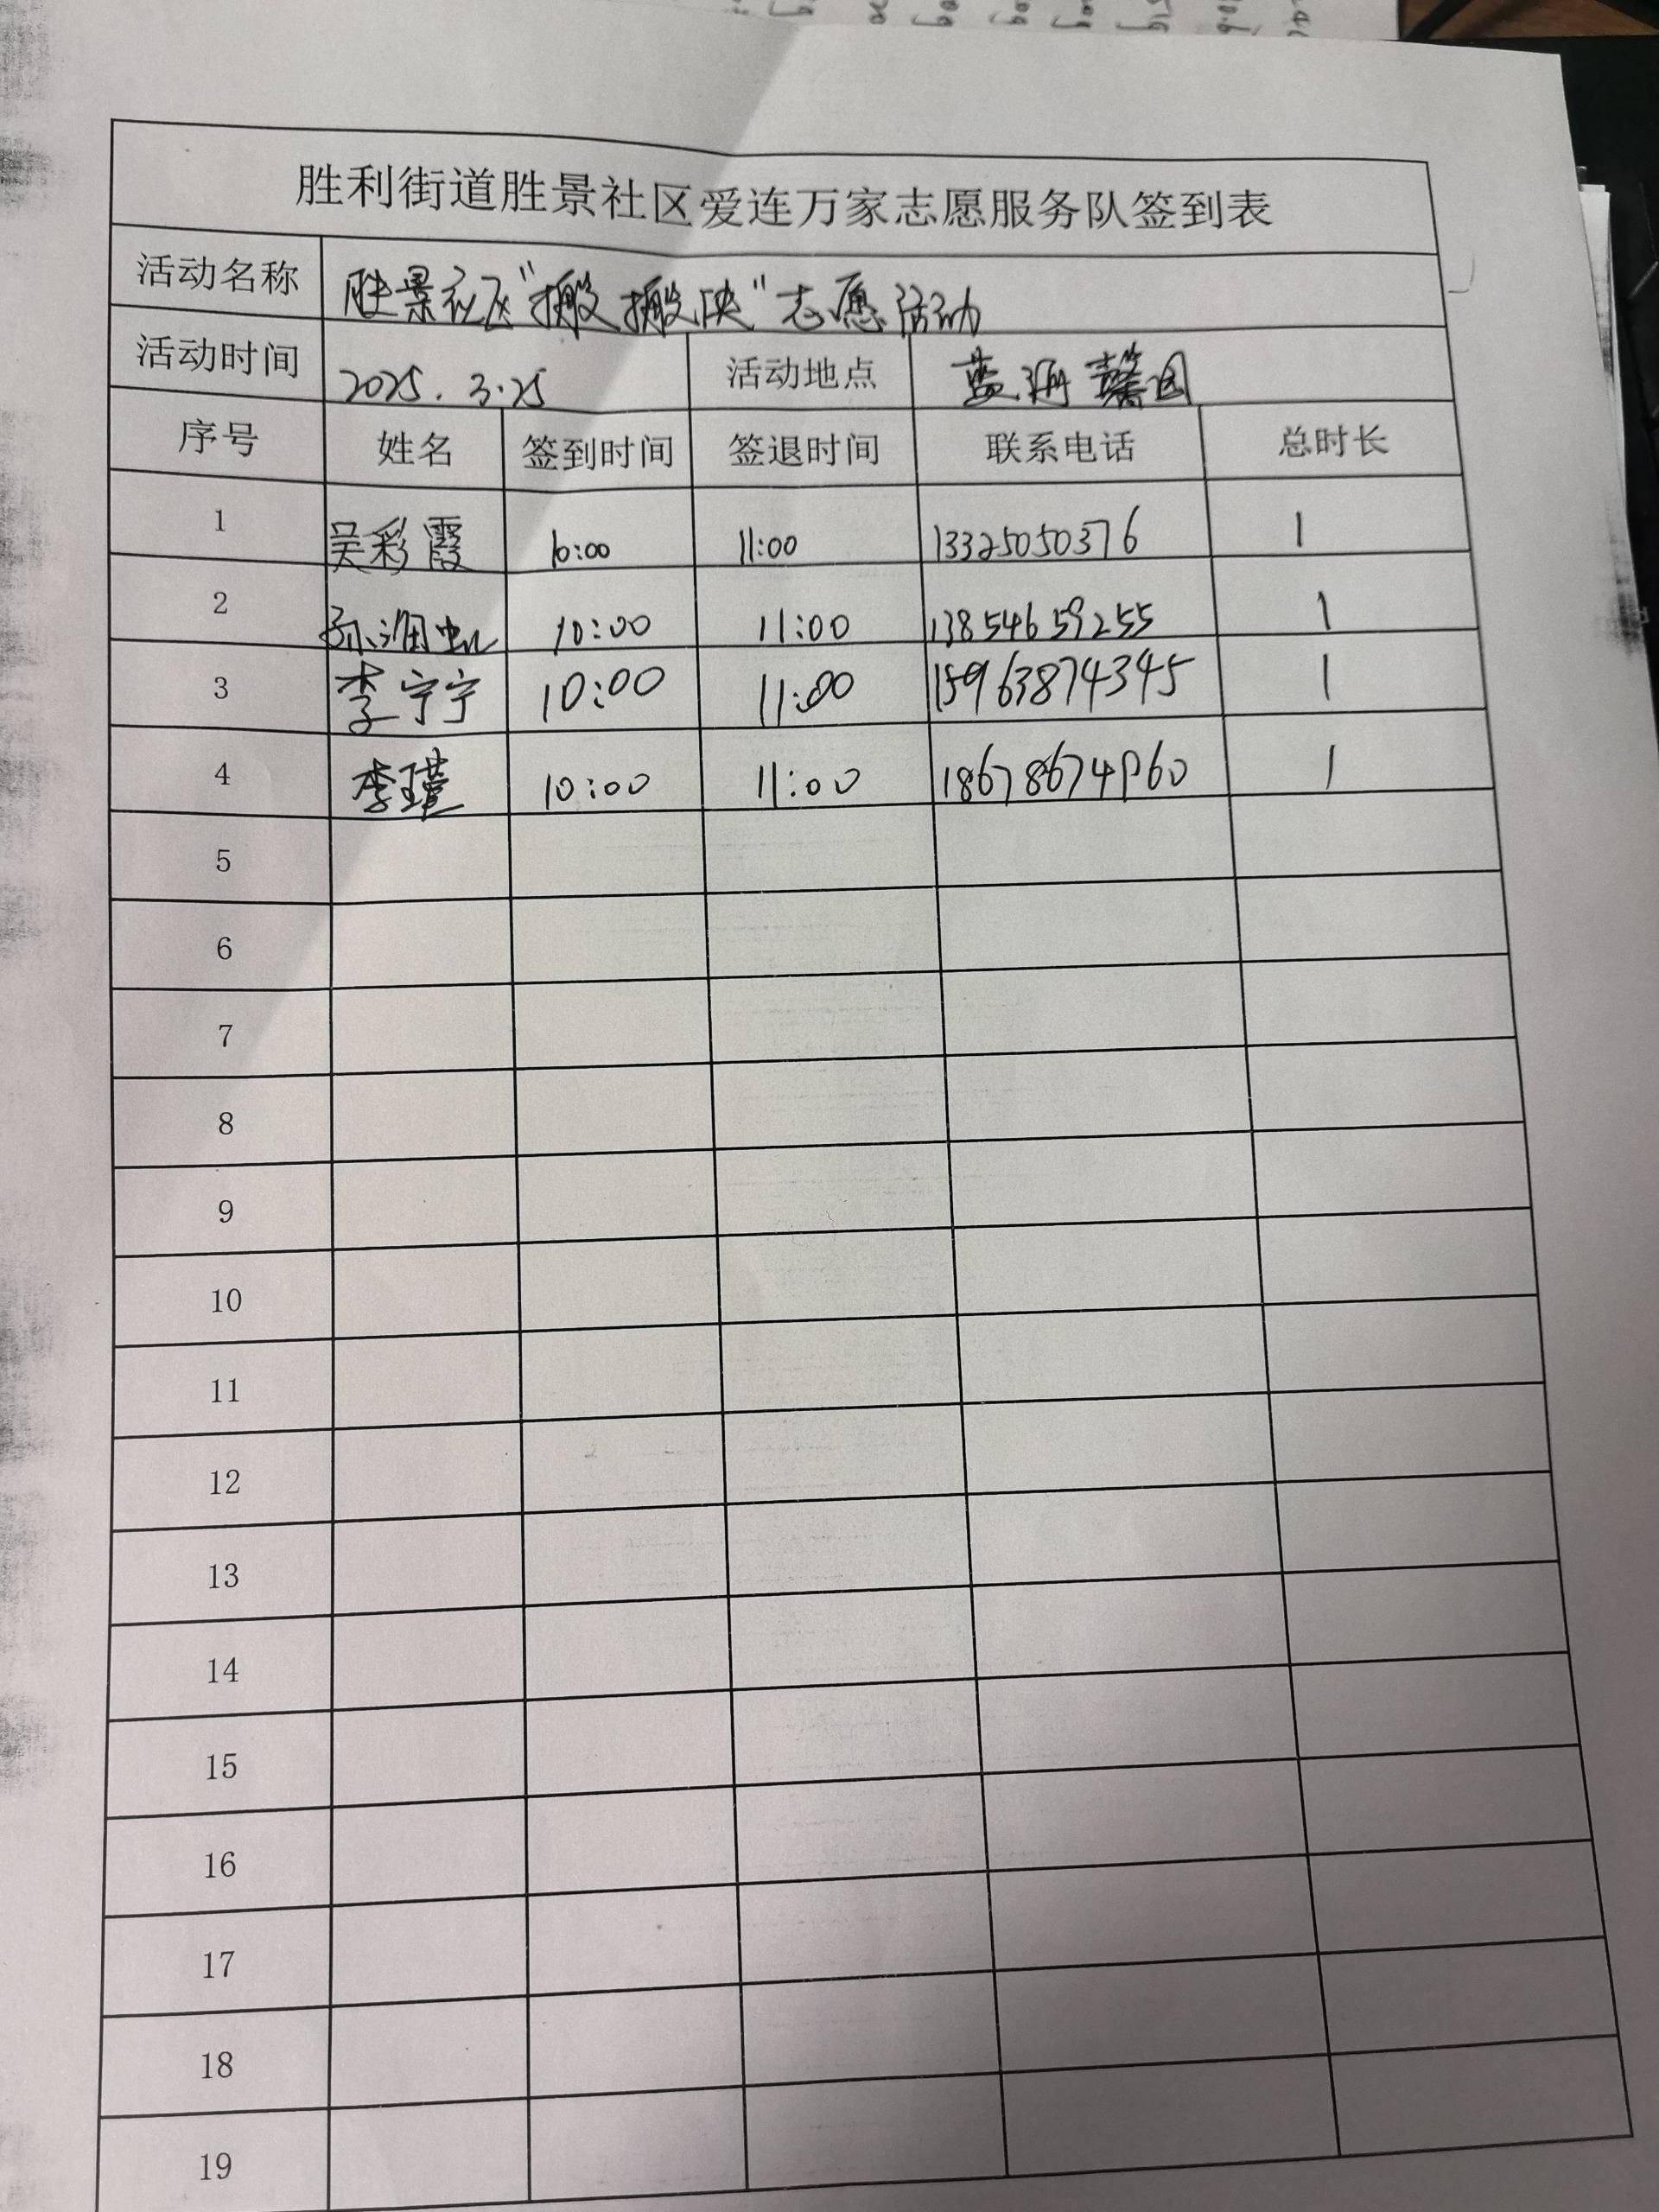 胜利街道胜景社区爱连万家志愿服务队签到表
活动名称 胜景社区"搬搬侠"志愿活动
活动时间 2025.3.25 活动地点 蓝海馨园
序号 姓名 签到时间 签退时间 联系电话 总时长
1 吴彩霞 10:00 11:00 13325050376 1
2 孙润虹 10:00 11:00 13854659255 1
3 李宁宁 10:00 11:00 15963874345 1
4 李瑾 10:00 11:00 18678674960 1
5
6
7
8
9
10
11
12
13
14
15
16
17
18
19